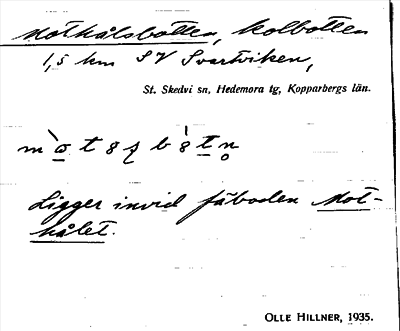 Mothålsbotten, kolbotten
1,5 km SV Svartviken,
St. Skedvi sn, Hedemora tg, Kopparbergs län.
Ligger invid fäboden Mot-
hålet.
OLLE HILLNER, 1935.